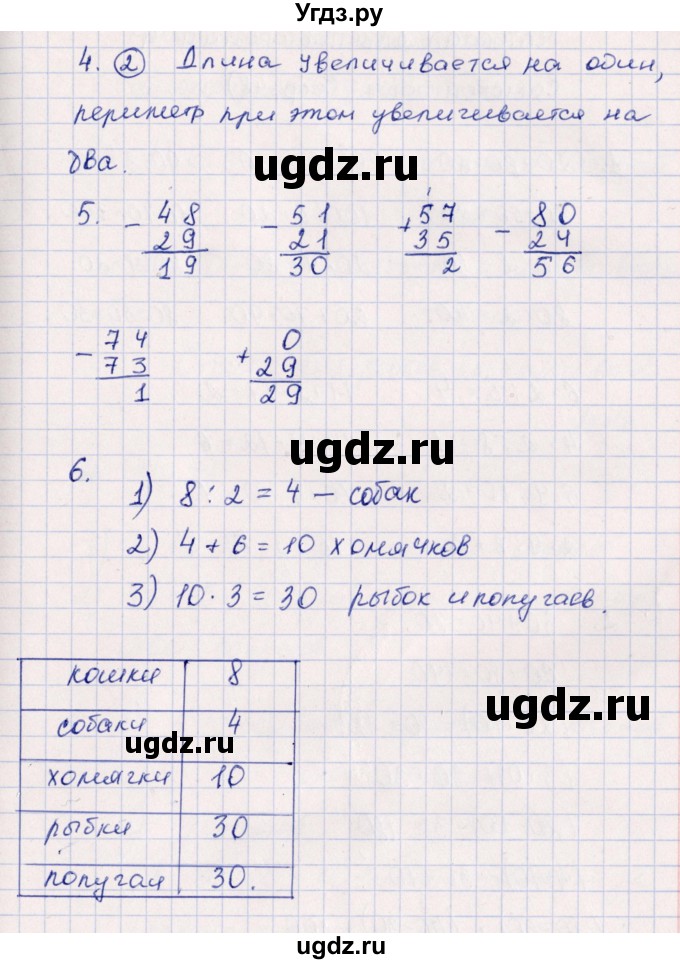 Угдз.ру
4. ② Длина увеличивается на один,
периметр при этом увеличивается на
два.
ugdz.ru
5. - 48 - 51 + 57 - 80
29 21 35 24
19 30 2 56
- 74 + 0
73 29
1 29
ugdz.ru
6.
1) 8 : 2 = 4 – собак
2) 4 + 6 = 10 хомячков
3) 10 · 3 = 30 рыбок и попугаев.
кошки 8
ugdz.ru
собаки 4
ugdz.ru
хомячки 10
рыбки 30
попугаи 30.
ugdz.ru